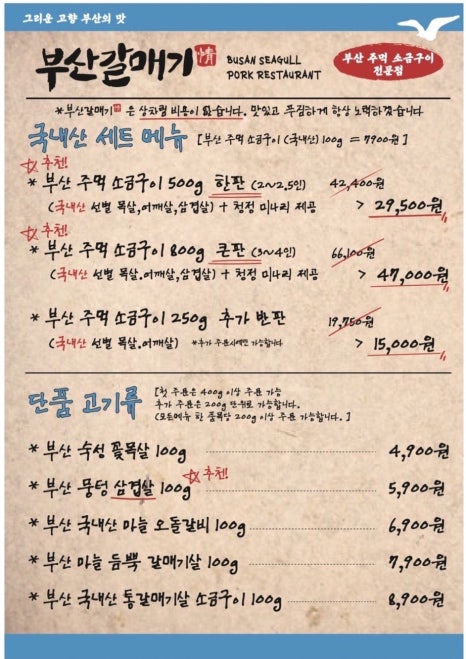 그리운 고향 부산의 맛
부산갈매기 情
BUSAN SEAGULL
PORK RESTAURANT
부산 주먹 소금구이
전문점
*부산갈매기情은 상차림 비용이 없습니다. 맛있고 푸짐하게 항상 노력하겠습니다
국내산 세트 메뉴 [부산 주먹 소금구이 (국내산) 100g = 7900원]
추천!
* 부산 주먹 소금구이 500g 한판 (2~2.5인) 42,400원
(국내산 선별 목살,어깨살,삼겹살) + 청정 미나리 제공 > 29,500원
추천!
* 부산 주먹 소금구이 800g 큰판 (3~4인) 66,100원
(국내산 선별 목살,어깨살,삼겹살) + 청정 미나리 제공 > 47,000원
* 부산 주먹 소금구이 250g 추가 반판 19,750원
(국내산 선별 목살,어깨살) *추가 주문시에만 가능합니다 > 15,000원
단품 고기류
[첫 주문은 400g 이상 주문 가능
추가 주문은 200g 단위로 가능합니다.
(모든메뉴 한 품목당 200g 이상 주문 가능합니다.]
* 부산 숙성 꽃목살 100g 4,900원
추천!
* 부산 뭉텅 삼겹살 100g 5,900원
* 부산 국내산 마늘 오돌갈비 100g 6,900원
* 부산 마늘 듬뿍 갈매기살 100g 7,900원
* 부산 국내산 통갈매기살 소금구이 100g 8,900원